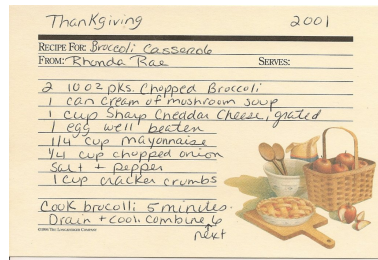 Thanksgiving 2001
RECIPE FOR: Broccoli Casserole
FROM: Rhonda Rae SERVES:
2 10 oz pks. Chopped Broccoli
1 can cream of mushroom soup
1 cup Sharp Cheddar Cheese, grated
1 egg well beaten
1/4 cup mayonnaise
1/4 cup chopped onion
Salt + pepper
1 cup cracker crumbs
Cook brocolli 5 minutes.
Drain + cool. Combine 6
next